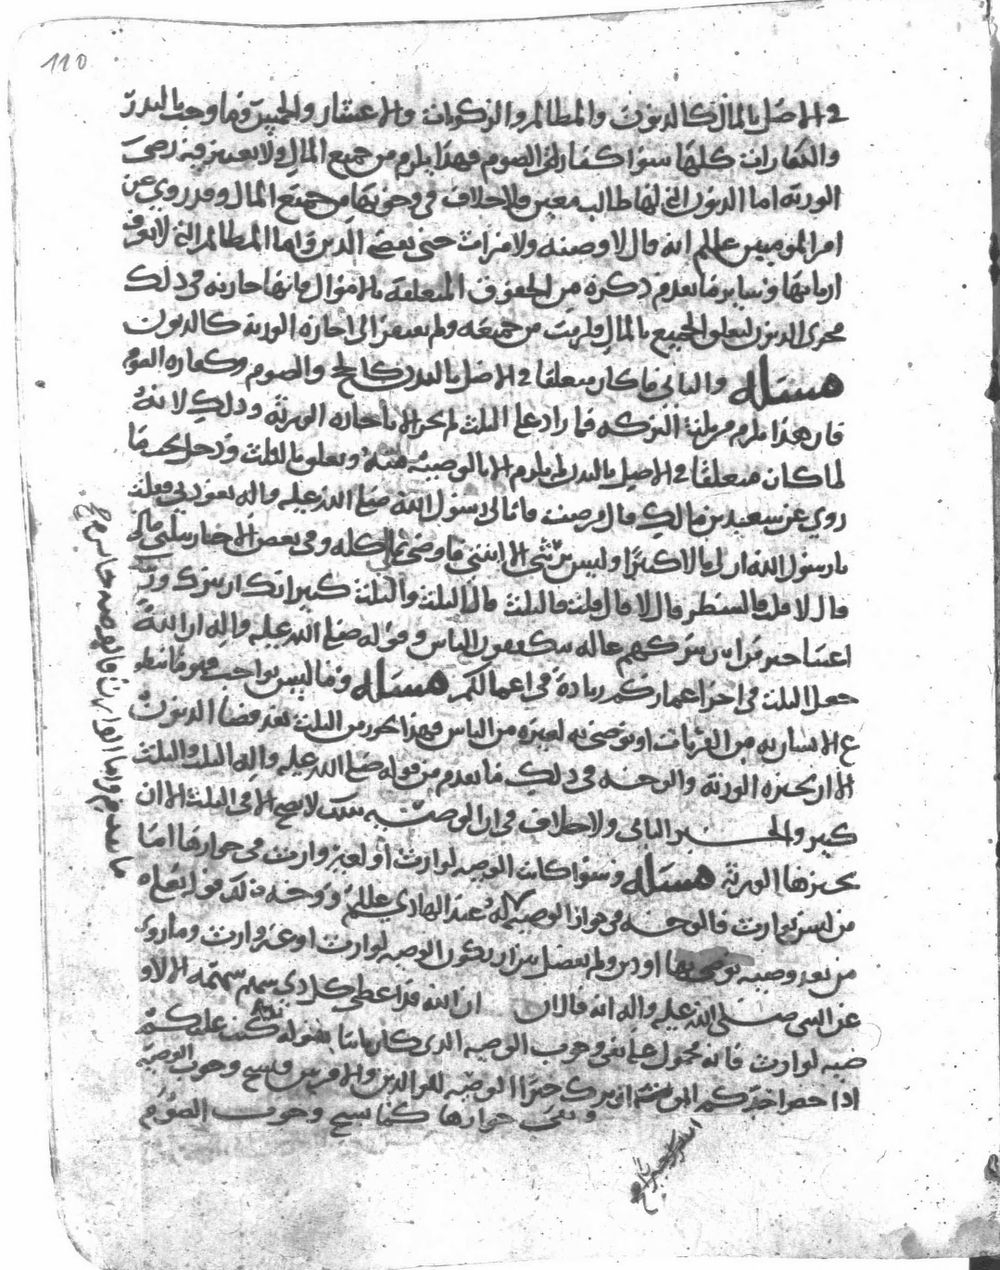 110
في الاصل بالمال كالديون والمظالم والزكوات والاعشار والخمس وما وجب بالندر
والكفارات كلها سوا كفارات الصوم فهذا يلزم من جميع المال ولا يعتبر فيه رضى
الورثة اما الديون التي لها طالب معين فلا خلاف في وجوبها من جميع المال وقد روي عن
امير المومنين علم انه قال لا وصية ولا ميراث حتى يقضى الدين واما المظالم التي لا يعرف
اربابها وساير ما تقدم ذكره من الحقوق المتعلقة بالاموال فانها جارية في ذلك
مجرى الديون لتعلق الجميع بالمال فلزمت من جميعه ولم يفتقر الى اجازة الورثة كالديون
مسئلة والثاني ما كان متعلقا في الاصل بالبدن كالحج والصوم وكفارة الصوم
فان هذا يلزم من ثلث التركة فما زاد على الثلث لم يجز الا باجازة الورثة وذلك لانه
لما كان متعلقا في الاصل بالبدن لم يلزم الا بالوصية منه وتعلق بالثلث ودخل تحت ما
روي عن سعيد بن مالك قال مرضت فاتاني رسول الله صلى الله عليه واله يعودني فقلت
يا رسول الله ان لي مالا كثيرا وليس يرثني الا ابنتي فاوصي بمالي كله وفي بعض الاخبار بثلثي مالي
قال لا قلت فالشطر قال لا قال قلت فالثلث قال الثلث والثلث كثير انك ان تترك ورثتك
اغنيا خير من ان تتركهم عالة يتكففون الناس وقوله صلى الله عليه واله ان الله
جعل الثلث في اخر اعماركم زيادة في اعمالكم مسئلة وما ليس بواجب فهو ما تطوع
ع الانسان به من القربات او يوصي به لغيره من الناس فهذا يجوز من الثلث بعد قضا الديون
الا ان يجيزه الورثة والوجه في ذلك ما تقدم من قوله صلى الله عليه واله الثلث والثلث
كثير والخبر الثاني ولا خلاف في ان الوصية بذلك لا تصح الا في الثلث الا ان
يجيزها الورثة مسئلة وسوا كانت الوصية لوارث او لغير وارث في جوازها اما
من ليس بوارث فالوجه في جواز الوصية له عند الهادي علم ووجه ذلك قوله تعالى
من بعد وصية يوصى بها او دين ولم يفصل بين ان يكون الوصية لوارث او غير وارث وما روي
عن النبي صلى الله عليه واله انه قال ان ان الله قد اعطى كل ذي سهم سهمه الا لا و
صية لوارث فانه محمول على نفي وجوب الوصية الذي كان ثابتا بقوله تعالى كتب عليكم
اذا حضر احدكم الموت ان ترك خيرا الوصية للوالدين والاقربين فنسخ وجوب الوصية
وبقي جوازها كما نسخ وجوب الصوم